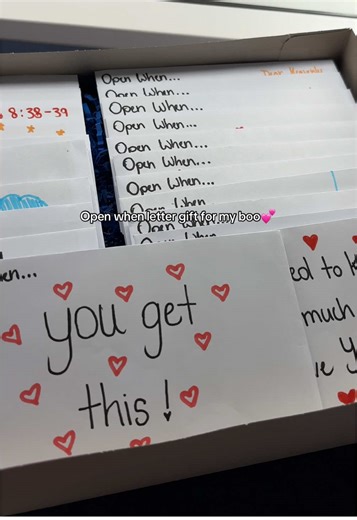 Open When...
Open When...
Open When...
8:38-39
Open When...
Open When...
Open When...
Open When...
Open When
Open when letter gift for my boo💕
Open When...
you get
this!
ed to
much